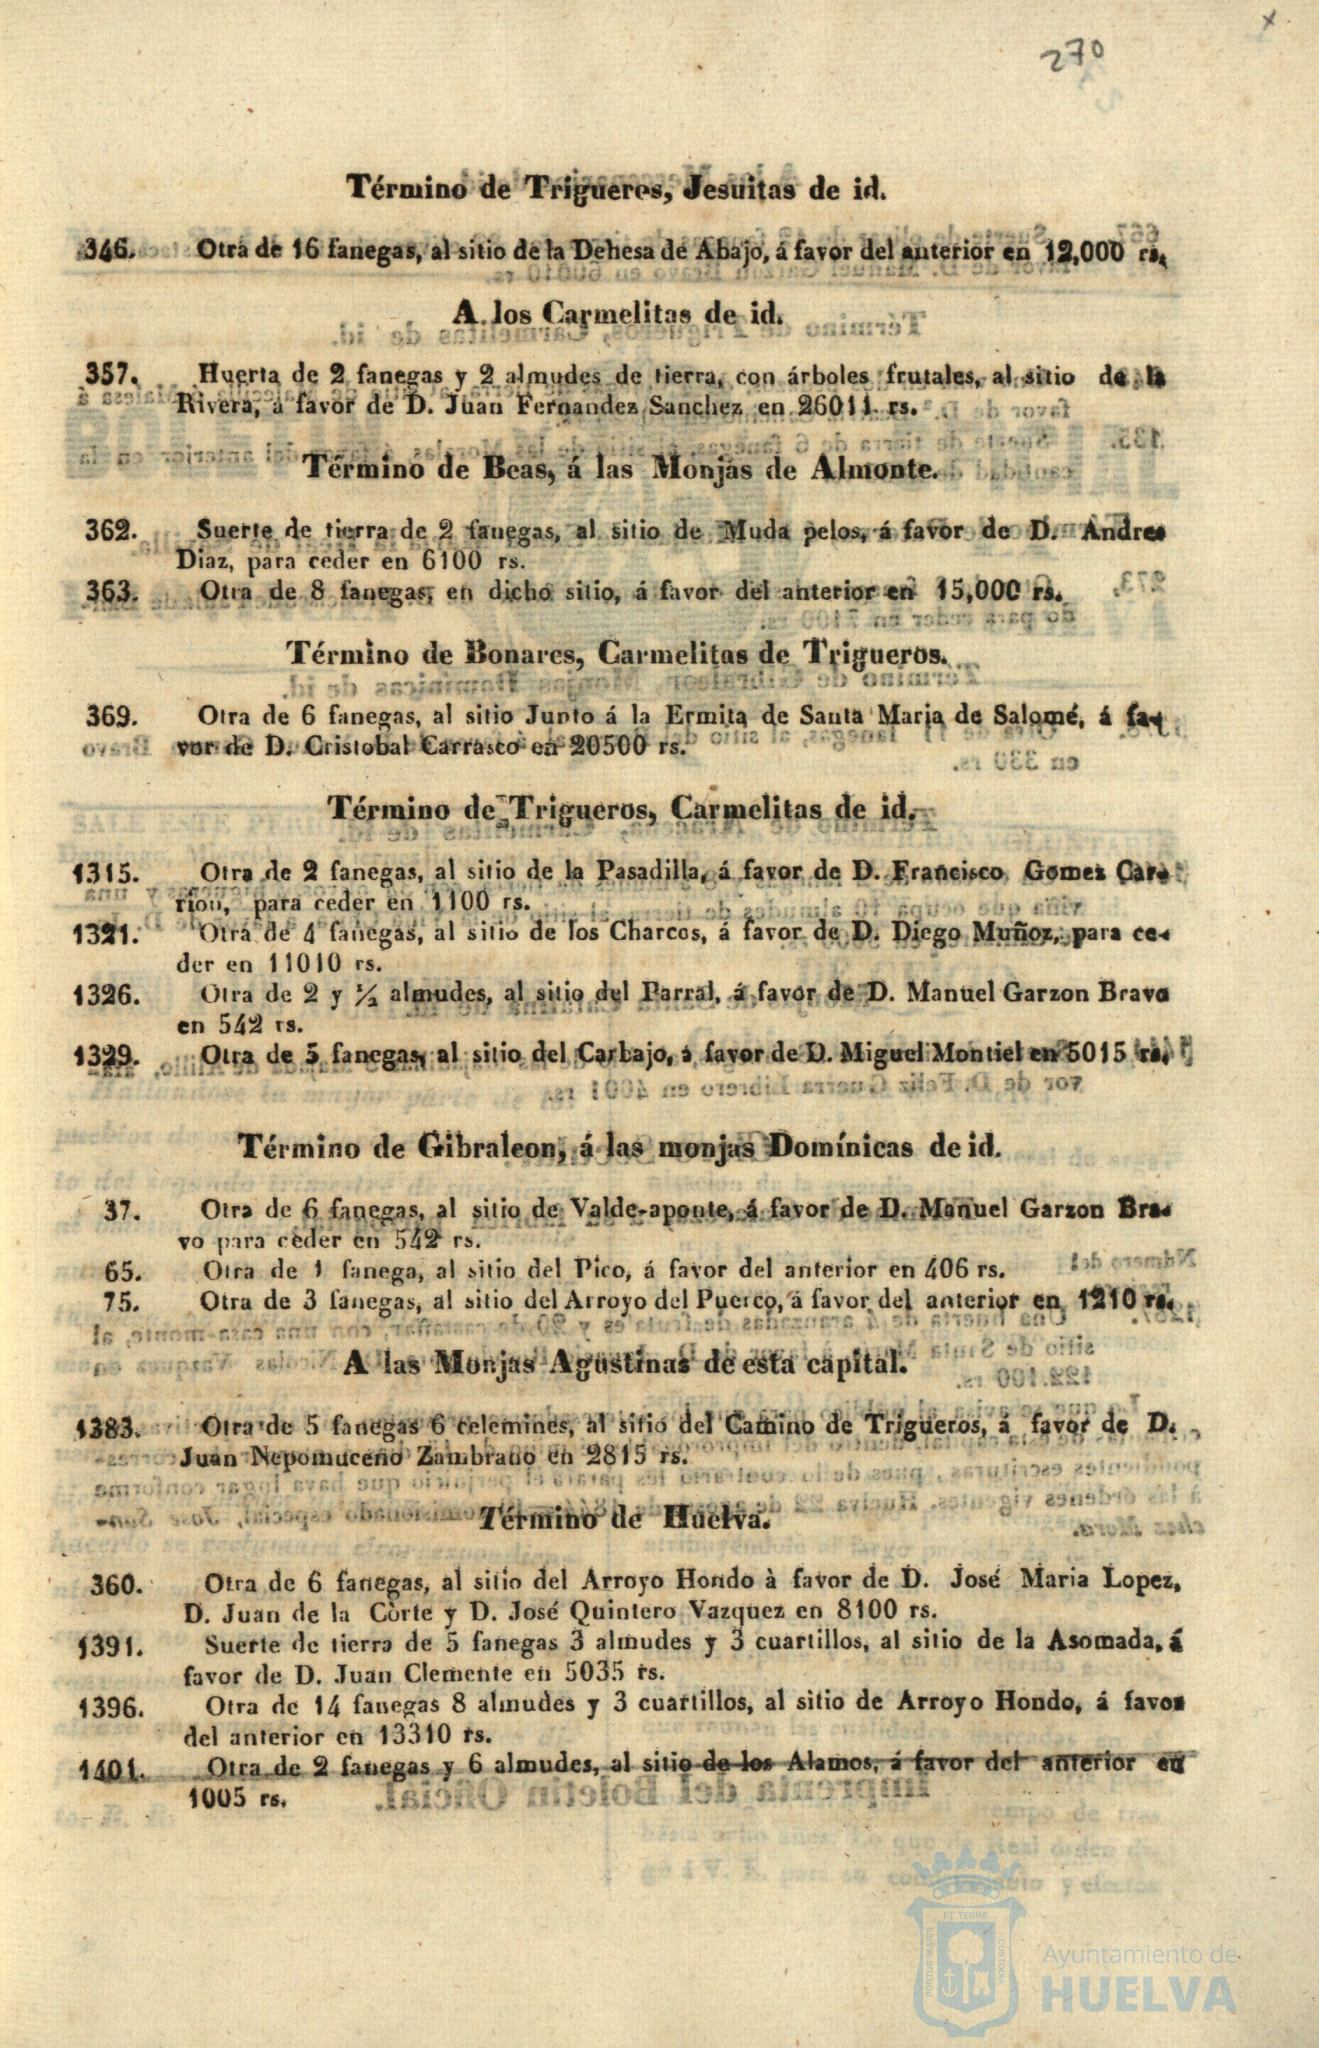 270
Término de Trigueros, Jesuitas de id.
346. Otra de 16 fanegas, al sitio de la Dehesa de Abajo, á favor del anterior en 12,000 rs.
A los Carmelitas de id.
357. Huerta de 2 fanegas y 2 almudes de tierra, con árboles frutales, al sitio de la
Rivera, á favor de D. Juan Fernandez Sanchez en 26011 rs.
Término de Beas, á las Monjas de Almonte.
362. Suerte de tierra de 2 fanegas, al sitio de Muda pelos, á favor de D. Andres
Diaz, para ceder en 6100 rs.
363. Otra de 8 fanegas, en dicho sitio, á favor del anterior en 15,000 rs.
Término de Bonares, Carmelitas de Trigueros.
369. Otra de 6 fanegas, al sitio Junto á la Ermita de Santa Maria de Salomé, á fa-
vor de D. Cristobal Carrasco en 20500 rs.
Término de Trigueros, Carmelitas de id.
1315. Otra de 2 fanegas, al sitio de la Pasadilla, á favor de D. Francisco Gomez Car-
rion, para ceder en 1100 rs.
1321. Otra de 4 fanegas, al sitio de los Charcos, á favor de D. Diego Muñoz, para ce-
der en 11010 rs.
1326. Otra de 2 y ½ almudes, al sitio del Parral, á favor de D. Manuel Garzon Bravo
en 542 rs.
1329. Otra de 5 fanegas, al sitio del Carbajo, á favor de D. Miguel Montiel en 5015 rs.
Término de Gibraleon, á las monjas Domínicas de id.
37. Otra de 6 fanegas, al sitio de Valde-aponte, á favor de D. Manuel Garzon Bra-
vo para ceder en 542 rs.
65. Otra de 1 fanega, al sitio del Pico, á favor del anterior en 406 rs.
75. Otra de 3 fanegas, al sitio del Arroyo del Puerco, á favor del anterior en 1210 rs.
A las Monjas Agustinas de esta capital.
1383. Otra de 5 fanegas 6 celemines, al sitio del Camino de Trigueros, á favor de D.
Juan Nepomuceno Zambrano en 2815 rs.
Término de Huelva.
360. Otra de 6 fanegas, al sitio del Arroyo Hondo à favor de D. José Maria Lopez,
D. Juan de la Còrte y D. José Quintero Vazquez en 8100 rs.
1391. Suerte de tierra de 5 fanegas 3 almudes y 3 cuartillos, al sitio de la Asomada, á
favor de D. Juan Clemente en 5035 rs.
1396. Otra de 14 fanegas 8 almudes y 3 cuartillos, al sitio de Arroyo Hondo, á favor
del anterior en 13310 rs.
1401. Otra de 2 fanegas y 6 almudes, al sitio de los Alamos, á favor del anterior en
1005 rs.
ET TERRÆ
PORTUS MARIS
CUSTODIA
Ayuntamiento de
HUELVA